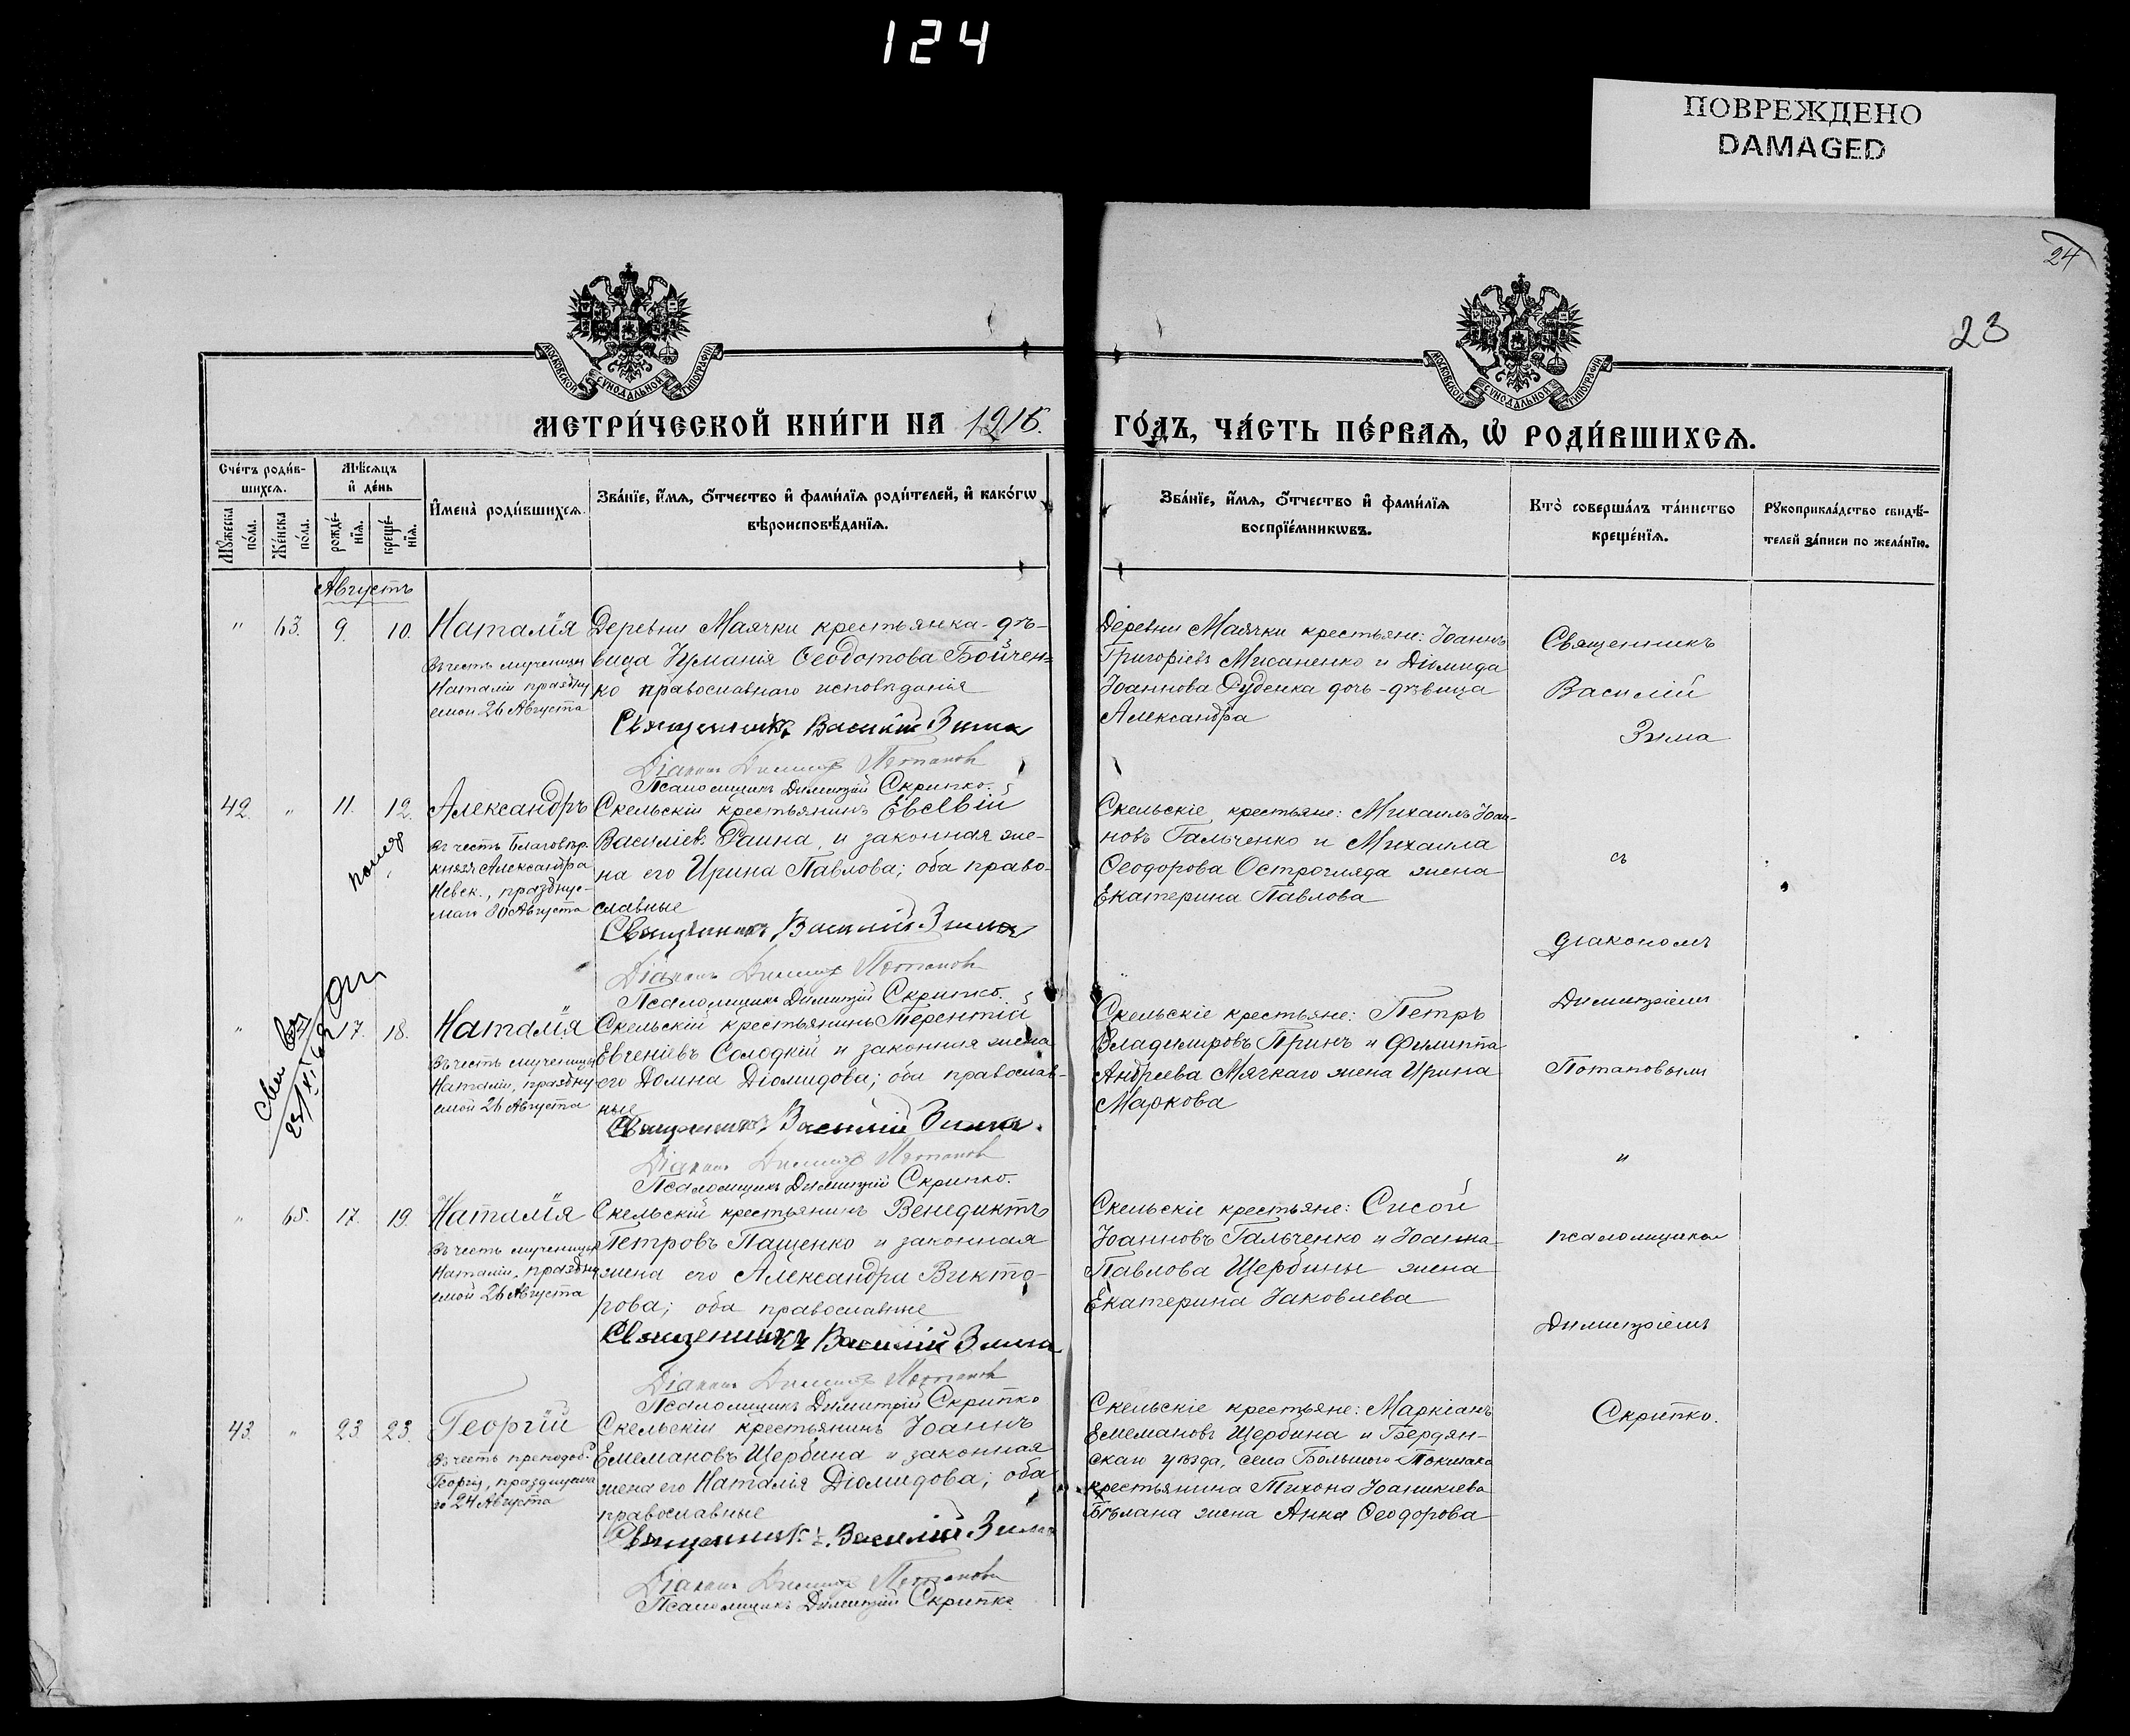 124
ПОВРЕЖДЕНО
DAMAGED
24
23
МОСКОВСКОЙ СѴНОДАЛЬНОЙ ТИПОГРАФІИ
МОСКОВСКОЙ СѴНОДАЛЬНОЙ ТИПОГРАФІИ
МЕТРИ́ЧЕСКОЙ КНИ́ГИ НА 1916.
ГО́ДЪ, ЧА́СТЬ ПЕ́РВАѦ, Ѡ҆ РОДИ́ВШИХСѦ.
Сче́тъ роди́в-
шихсѧ.
Мѣ́сѧцъ
и҆ де́нь
Мꙋ́жеска
по́ла.
Же́нска
по́ла.
рожде́-
нїѧ.
креще́-
нїѧ.
И҆мена̀ роди́вшихсѧ.
Зва́нїе, и҆́мѧ, ѻ҆́тчество и҆ фами́лїѧ роди́телей, и҆ како́гѡ
вѣроисповѣ́данїѧ.
Зва́нїе, и҆́мѧ, ѻ҆́тчество и҆ фами́лїѧ
воспрїе́мникѡвъ.
Кто̀ соверша́лъ та́инство
креще́нїѧ.
Рꙋкоприкла́дство свидѣ́-
телей за́писи по жела́нїю.
Августъ
" 63. 9. 10. Наталія
Въ честь мученицы
Наталіи праздну
емой 26 Августа
Деревни Маячки крестьянка-дѣ-
вица Ѳеодотова Бойчен=
ко православнаго исповѣданія
Священникъ Василій Зима
Діаконъ Димитр Потаповъ
Псаломщикъ Димитрій Скрипко.
Деревни Маячки крестьяне: Іоаннъ
Григоріевъ Мисаненко и Діомида
Іоаннова Руденка дочь-дѣвица
Александра
Священникъ
Василій
Зима
42. " 11. 12. Александръ
въ честь Благовѣр.
князя Александра
Невск., празднуе-
маго 30 Августа
Скельскій крестьянинъ Евсевій
Василіев. Раина, и законная же-
на его Ирина Павлова; оба право-
славные
Священникъ Василій Зима
Діаконъ Димитр Потаповъ
Псаломщикъ Димитрій Скрипко.
Скельскіе крестьяне: Михаилъ Іоан-
новъ Гальченко и Михаила
Ѳеодорова Острогляда жена
Екатерина Павлова
съ
діакономъ
" 17. 18. Наталія
Въ честь мученицы
Наталіи, праздну
емой 26 Августа
Скельскій крестьянинъ Терентій
Евгеніевъ Солодкій и законная жена
его Домна Діомидова; оба православ-
ные
Священникъ Василій Зима.
Діаконъ Димитр Потаповъ
Псаломщикъ Димитрій Скрипко.
Скельскіе крестьяне: Петръ
Владимировъ Принь и Филиппа
Андреева Мягкаго жена Ирина
Маркова
Димитріемъ
Потаповымъ
и
" 65. 17. 19. Наталія
Въ честь мученицы
Наталіи, праздну
емой 26 Августа
Скельскій крестьянинъ Венедиктъ
Петровъ Пащенко и законная
жена его Александра Викто-
рова; оба православные
Священникъ Василій Зима
Діаконъ Димитр Потаповъ
Псаломщикъ Димитрій Скрипко
Скельскіе крестьяне: Сисой
Іоанновъ Гальченко и Іоанна
Павлова Щербины жена
Екатерина Іаковлева
псаломщикомъ
Димитріемъ
43. " 23. 23. Георгій
Въ честь преподоб.
Георгія, празднуема
го 24 Августа
Скельскій крестьянинъ Іоаннъ
Емемановъ Щербина и законная
жена его Наталія Діомидова; оба
православные
Священникъ Василій Зима
Діаконъ Димитр Потаповъ
Псаломщикъ Димитрій Скрипко.
Скельскіе крестьяне: Маркіанъ
Емемановъ Щербина и Бердян-
скаго уѣзда, села Большого Токмака
крестьянина Тихона Іоаникіева
Бѣлана жена Анна Ѳеодорова
Скрипко.